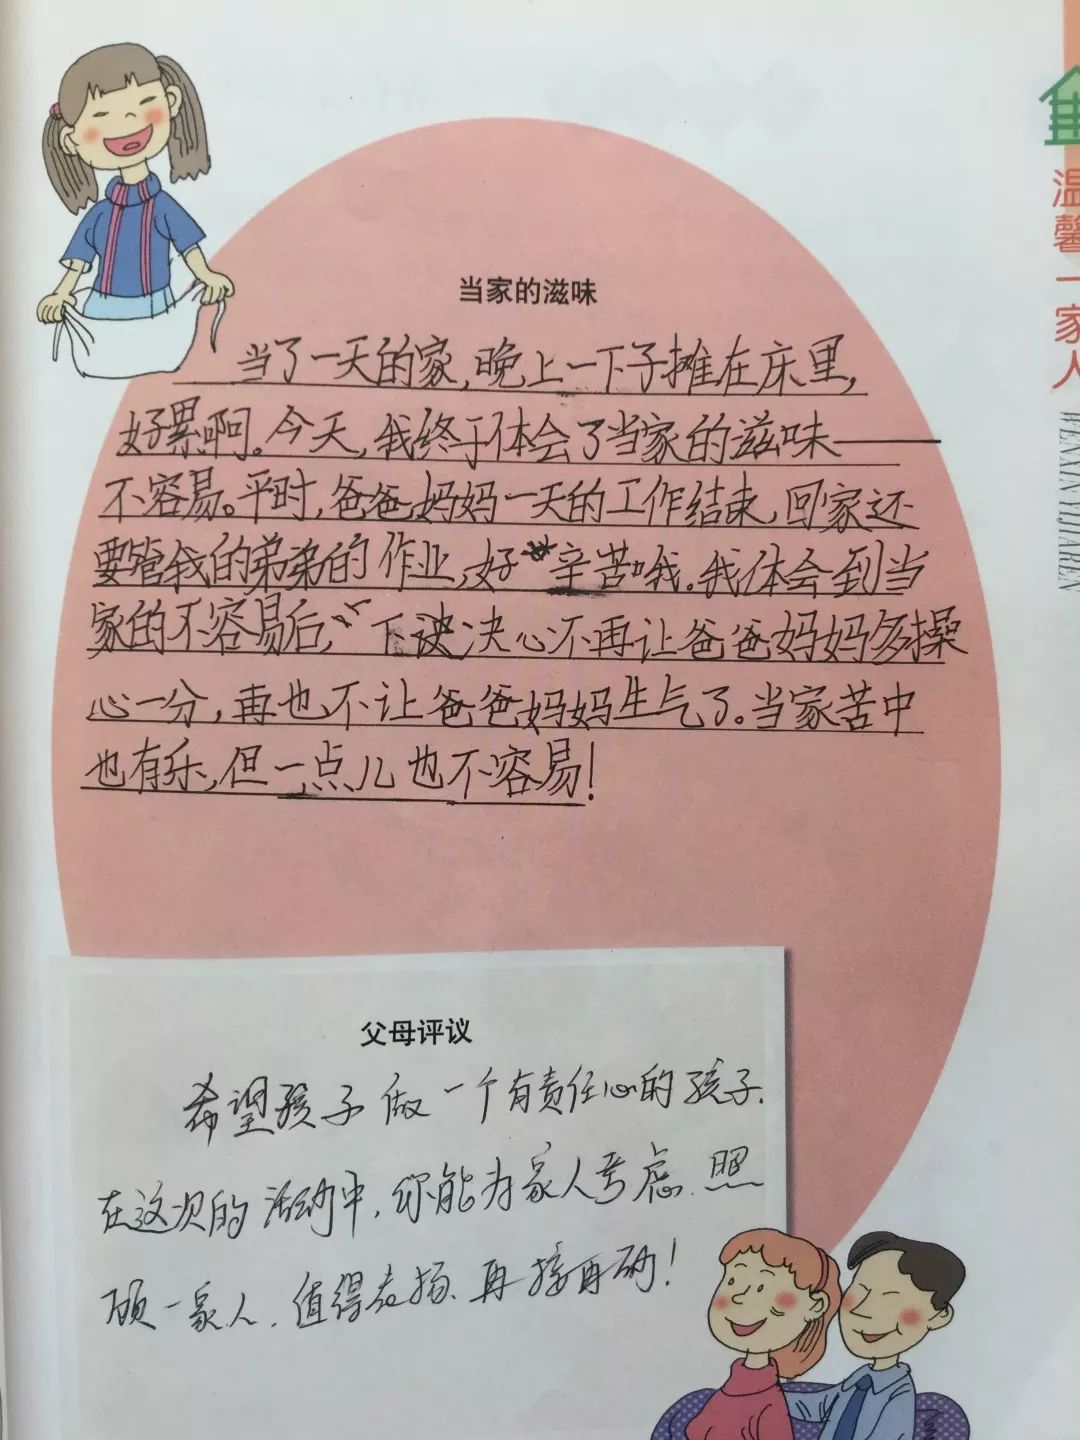 当家的滋味
当了一天的家,晚上一下子摊在床里,
好累啊。今天,我终于体会了当家的滋味——
不容易。平时,爸爸妈妈一天的工作结束,回家还
要管我的弟弟的作业,好辛苦哦。我体会到当
家的不容易后,下决心不再让爸爸妈妈多操
心一分,再也不让爸爸妈妈生气了。当家苦中
也有乐,但一点儿也不容易!
父母评议
希望孩子做一个有责任心的孩子.
在这次的活动中,你能为家人考虑.照
顾一家人.值得表扬.再接再励!
温馨一家人
WENXIN YIJIAREN